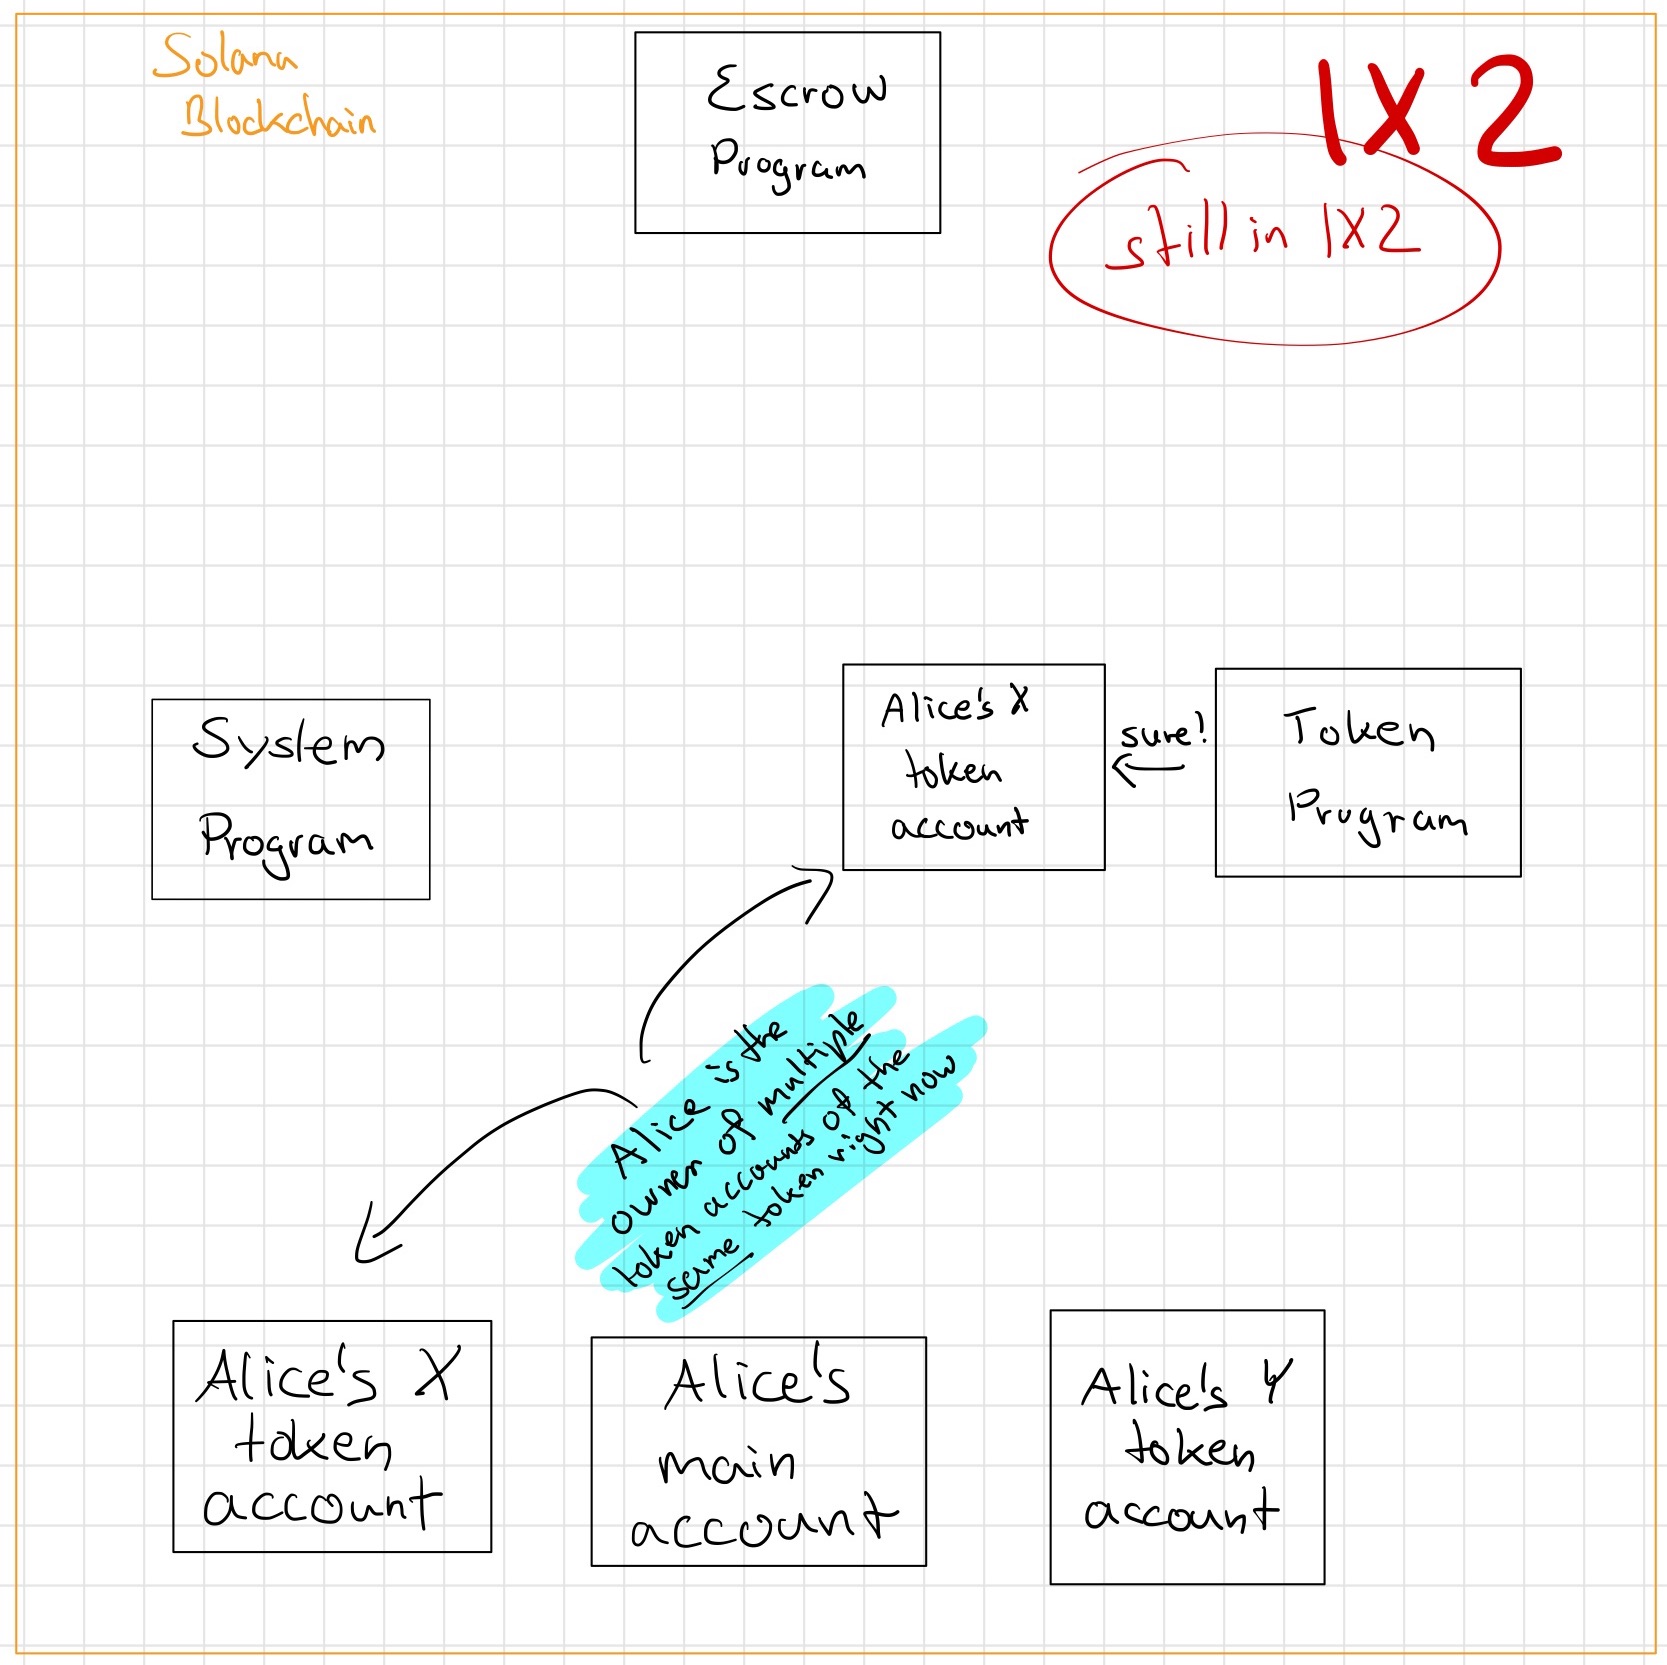 Solana
Blockchain
Escrow
Program
1X2
still in 1X2
System
Program
Alice's X
token
account
sure!
Token
Program
Alice is the
owner of multiple
token accounts of the
same token right now
Alice's X
token
account
Alice's
main
account
Alice's Y
token
account